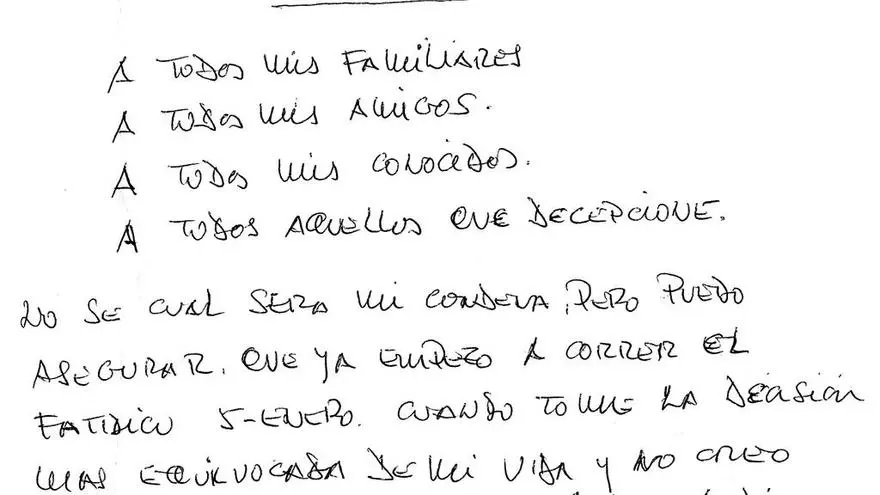 A TODOS MIS FAMILIARES
A TODOS MIS AMIGOS.
A TODOS MIS CONOCIDOS.
A TODOS AQUELLOS QUE DECEPCIONE.
NO SE CUAL SERA MI CONDENA, PERO PUEDO
ASEGURAR, QUE YA EMPEZO A CORRER EL
FATIDICO 5-ENERO. CUANDO TOME LA DECISION
MAS EQUIVOCADA DE MI VIDA Y NO CREO